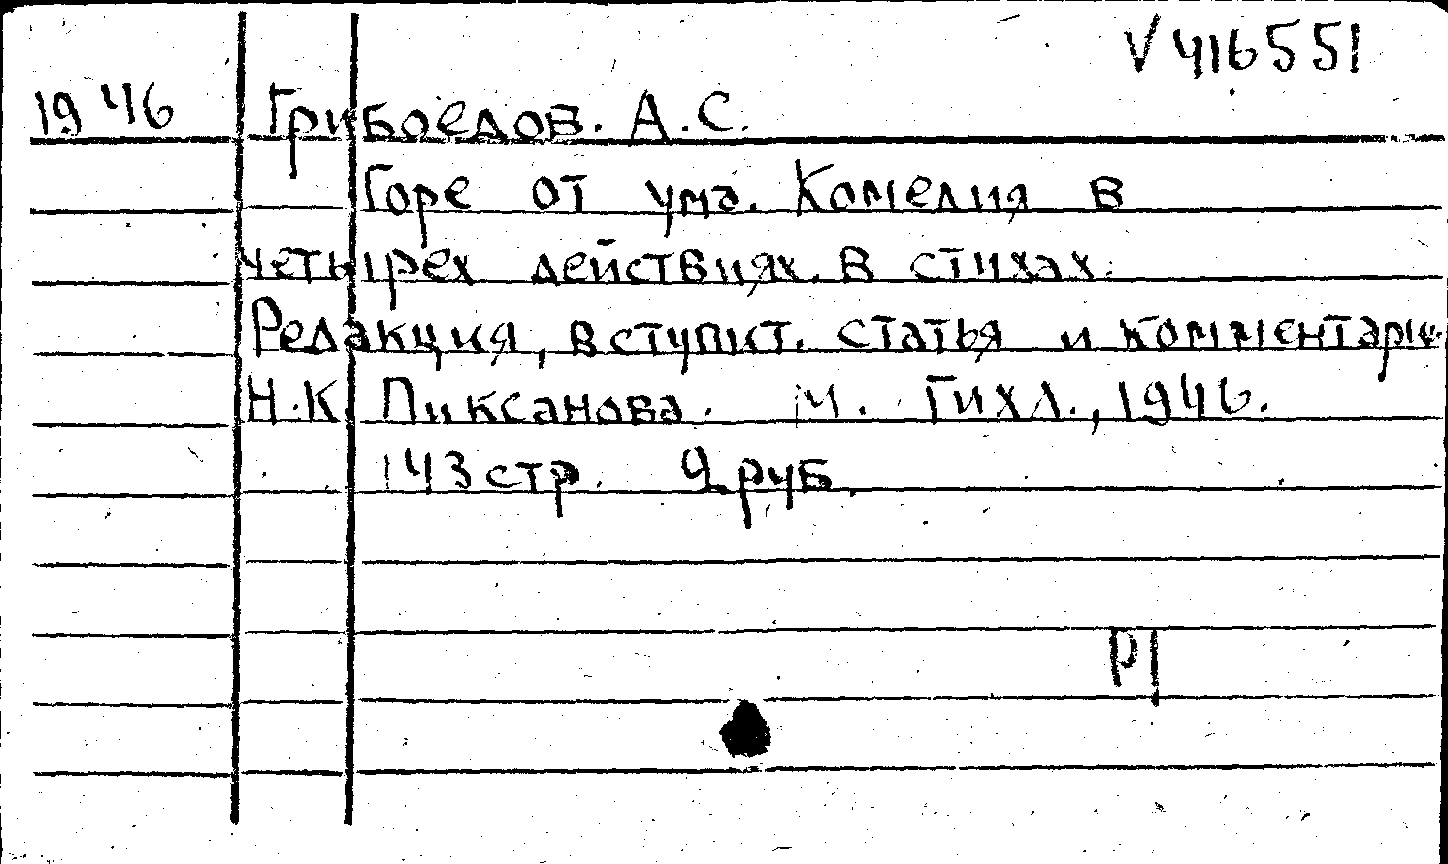 V 416551
1946 Грибоедов. А.С.
Горе от ума. Комедия в
четырех действиях. В стихах.
Редакция, вступит. статья и комментарии
Н.К. Пиксанова. М. Гихл., 1946.
143 стр. 9 руб.